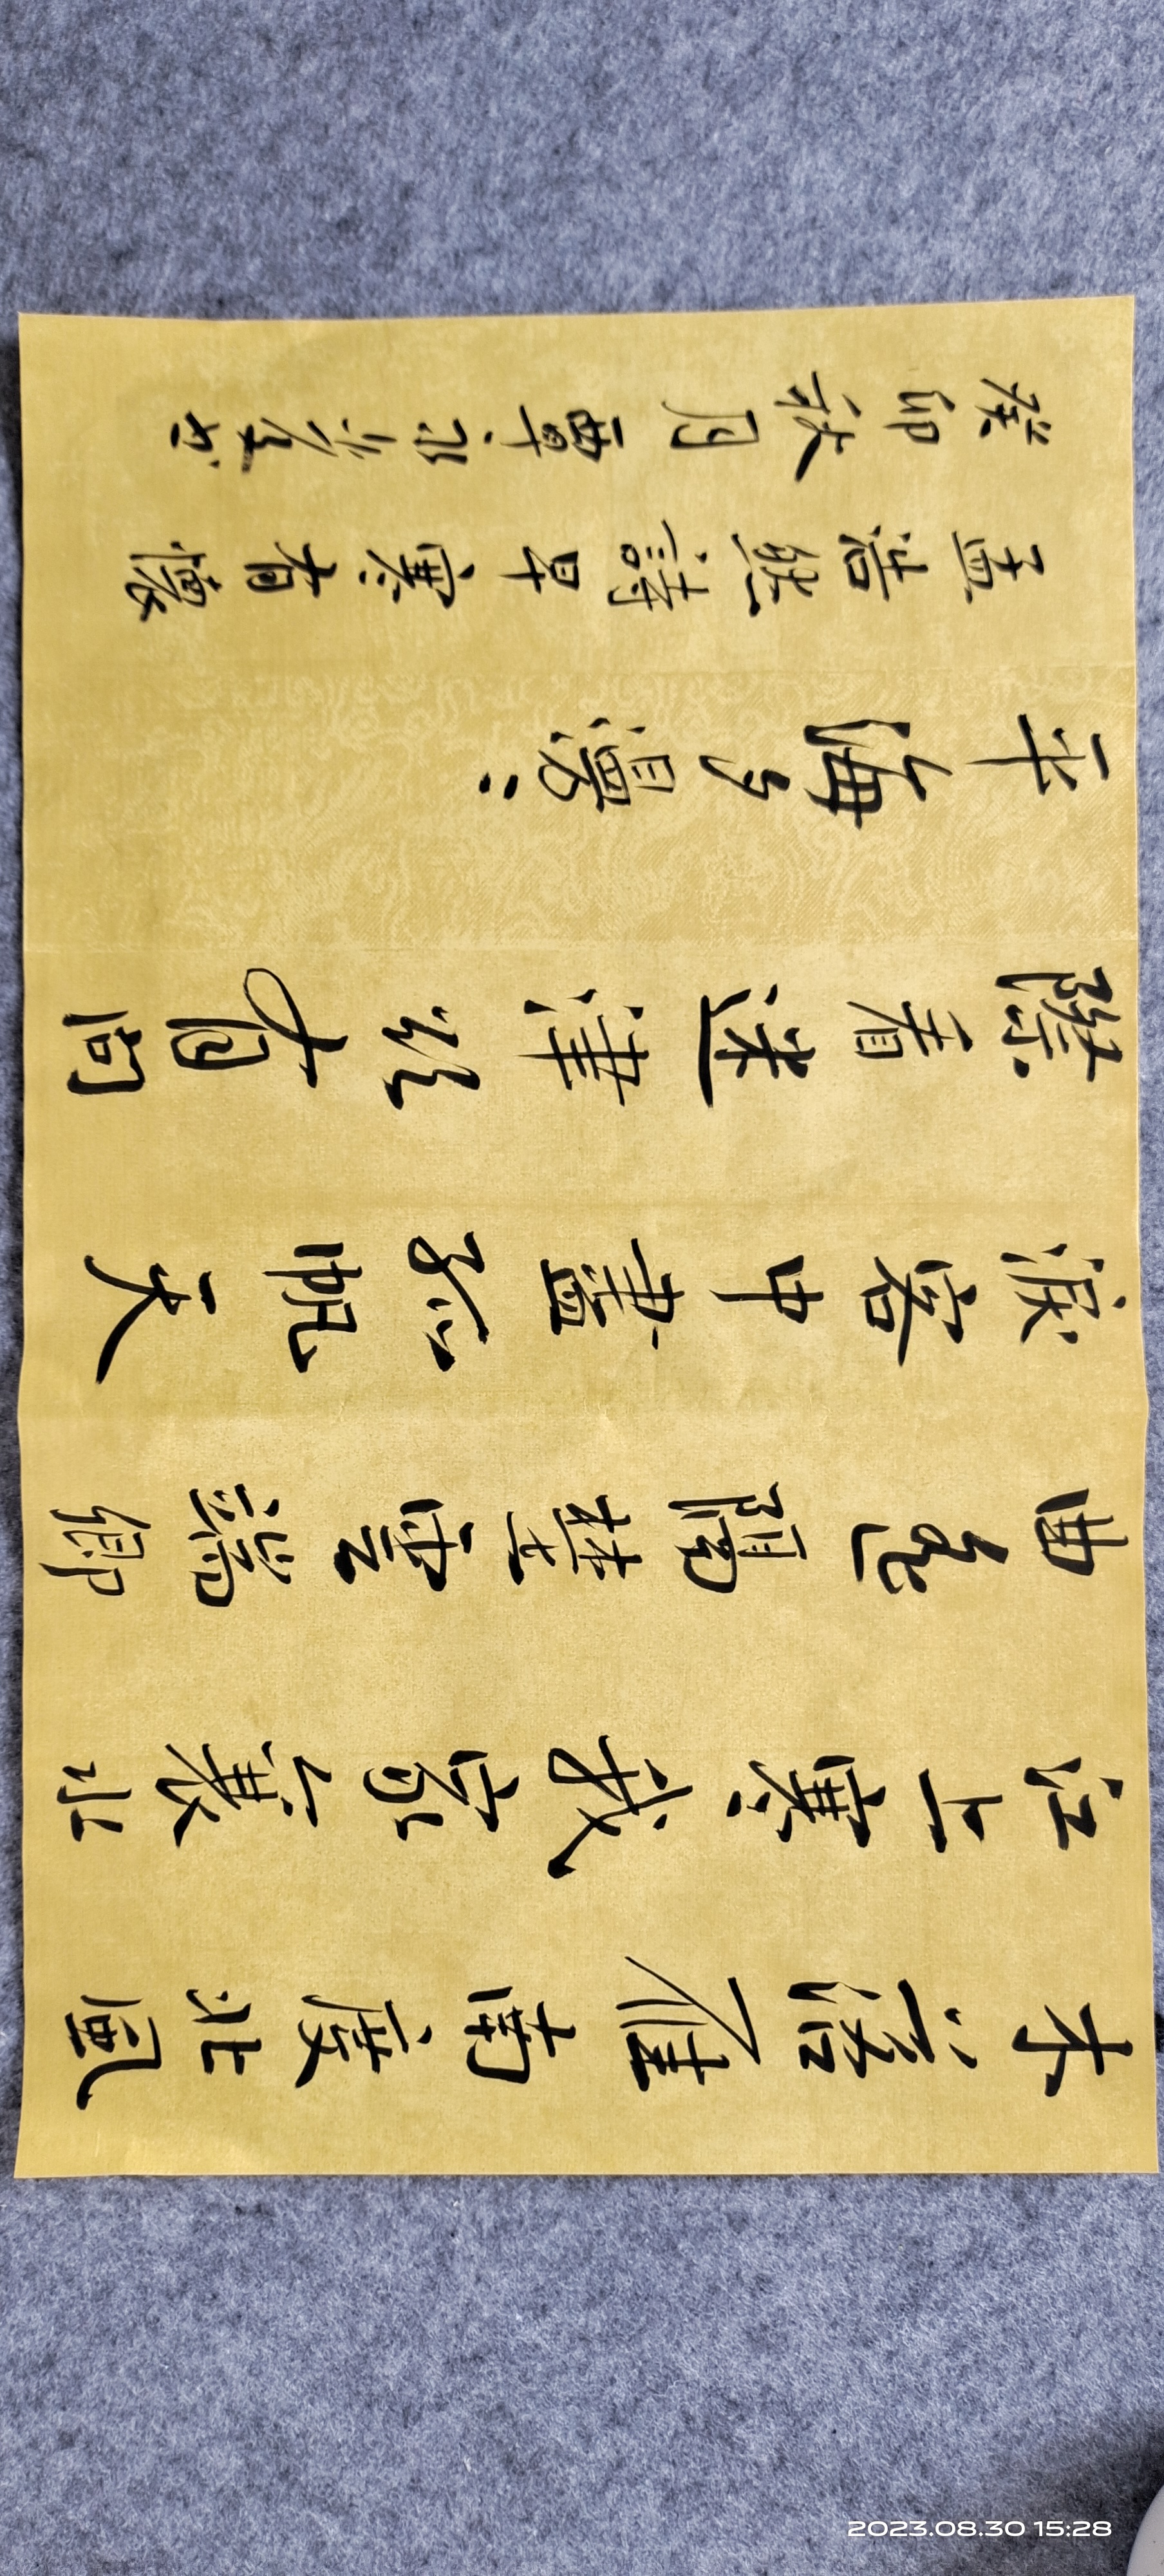 木落雁南度北風
江上寒我家襄水
曲遥隔楚雲端鄉
淚客中盡孤帆天
際看迷津欲有問
平海夕漫〻
孟浩然詩早寒有懷
癸卯秋月覃書
2023.08.30 15:28